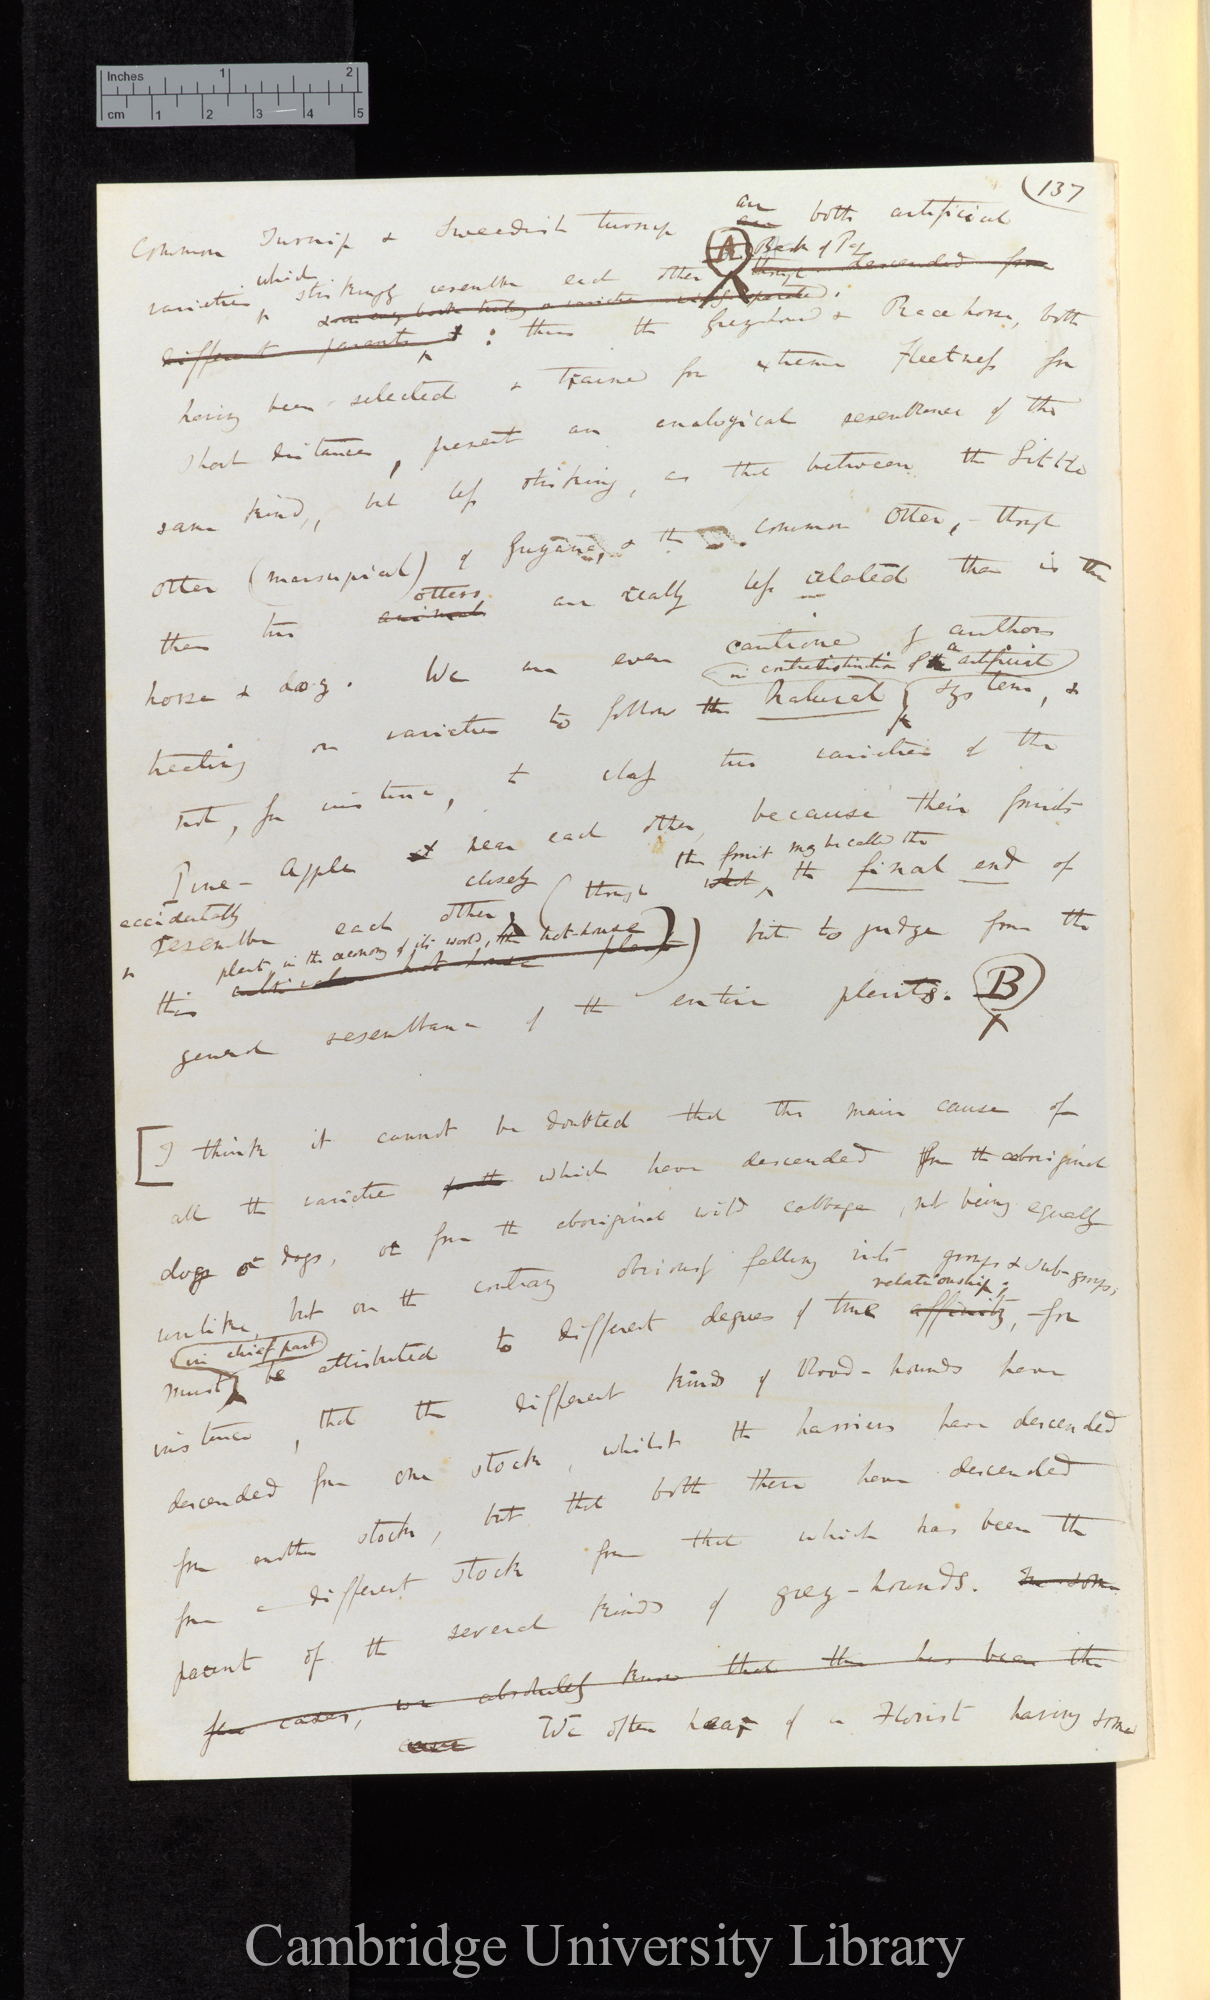 Inches 1 2
cm 1 2 3 4 5
137
are
Common Turnip & Sweedish turnip are both artificial
A Back of Pag
which
varieties strikingly resemble each other though descended from
different parents : thus the Greyhound & Race horse, both
having been selected & trained for extreme fleetness for
short distances, present an analogical resemblance of the
same kind, but less striking, as that between the little
otter (marsupial) of Guyana, & the common otter, – though
otters
these two animals are really less related than is the
horse & dog. We are even cautioned by authors
in contradistinction of an artificial
treating on varieties to follow the natural system, &
not, for instance, to class two varieties of the
Pine-Apple near each other, because their fruits
the fruit may be called the
accidentally closely
resemble each other, (though what, the final end of
plant, in the œconomy of its world, the hot-house
this cultivated hot house plant) but to judge from the
general resemblance of the entire plants. B
[I think it cannot be doubted that the main cause of
all the varieties which have descended from the aboriginal
dog or dogs, or from the aboriginal wild cabbage, not being equally
unlike, but on the contrary obviously falling into groups & sub-groups,
relationship;
in chief part
must be attributed to different degrees of true affinity, – for
instance, that the different kinds of Blood-hounds have
descended from one stock, whilst the harriers have descended
from another stock, but that both these have descended
from a different stock from that which has been the
parent of the several kinds of grey-hounds. In some
few cases, we absolutely know that this has been the
cause We often hear of a Florist having some
Cambridge University Library